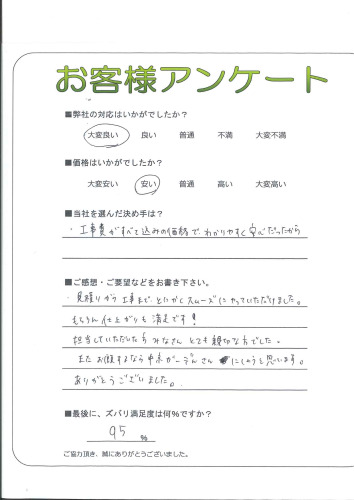 お客様アンケート
■弊社の対応はいかがでしたか?
大変良い 良い 普通 不満 大変不満
■価格はいかがでしたか?
大変安い 安い 普通 高い 大変高い
■当社を選んだ決め手は?
・工事費がすべて込みの価格で、わかりやすく安心だったから
■ご感想・ご要望などをお書き下さい。
・見積りから工事まで、とにかくスムーズにやっていただけました。
もちろん仕上がりも満足です!
担当していただいた方みなさんとても親切な方でした。
またお願するなら中京ガーデンさんにしようと思います。
ありがとうございました。
■最後に、ズバリ満足度は何%ですか?
95 %
ご協力頂き、誠にありがとうございました。